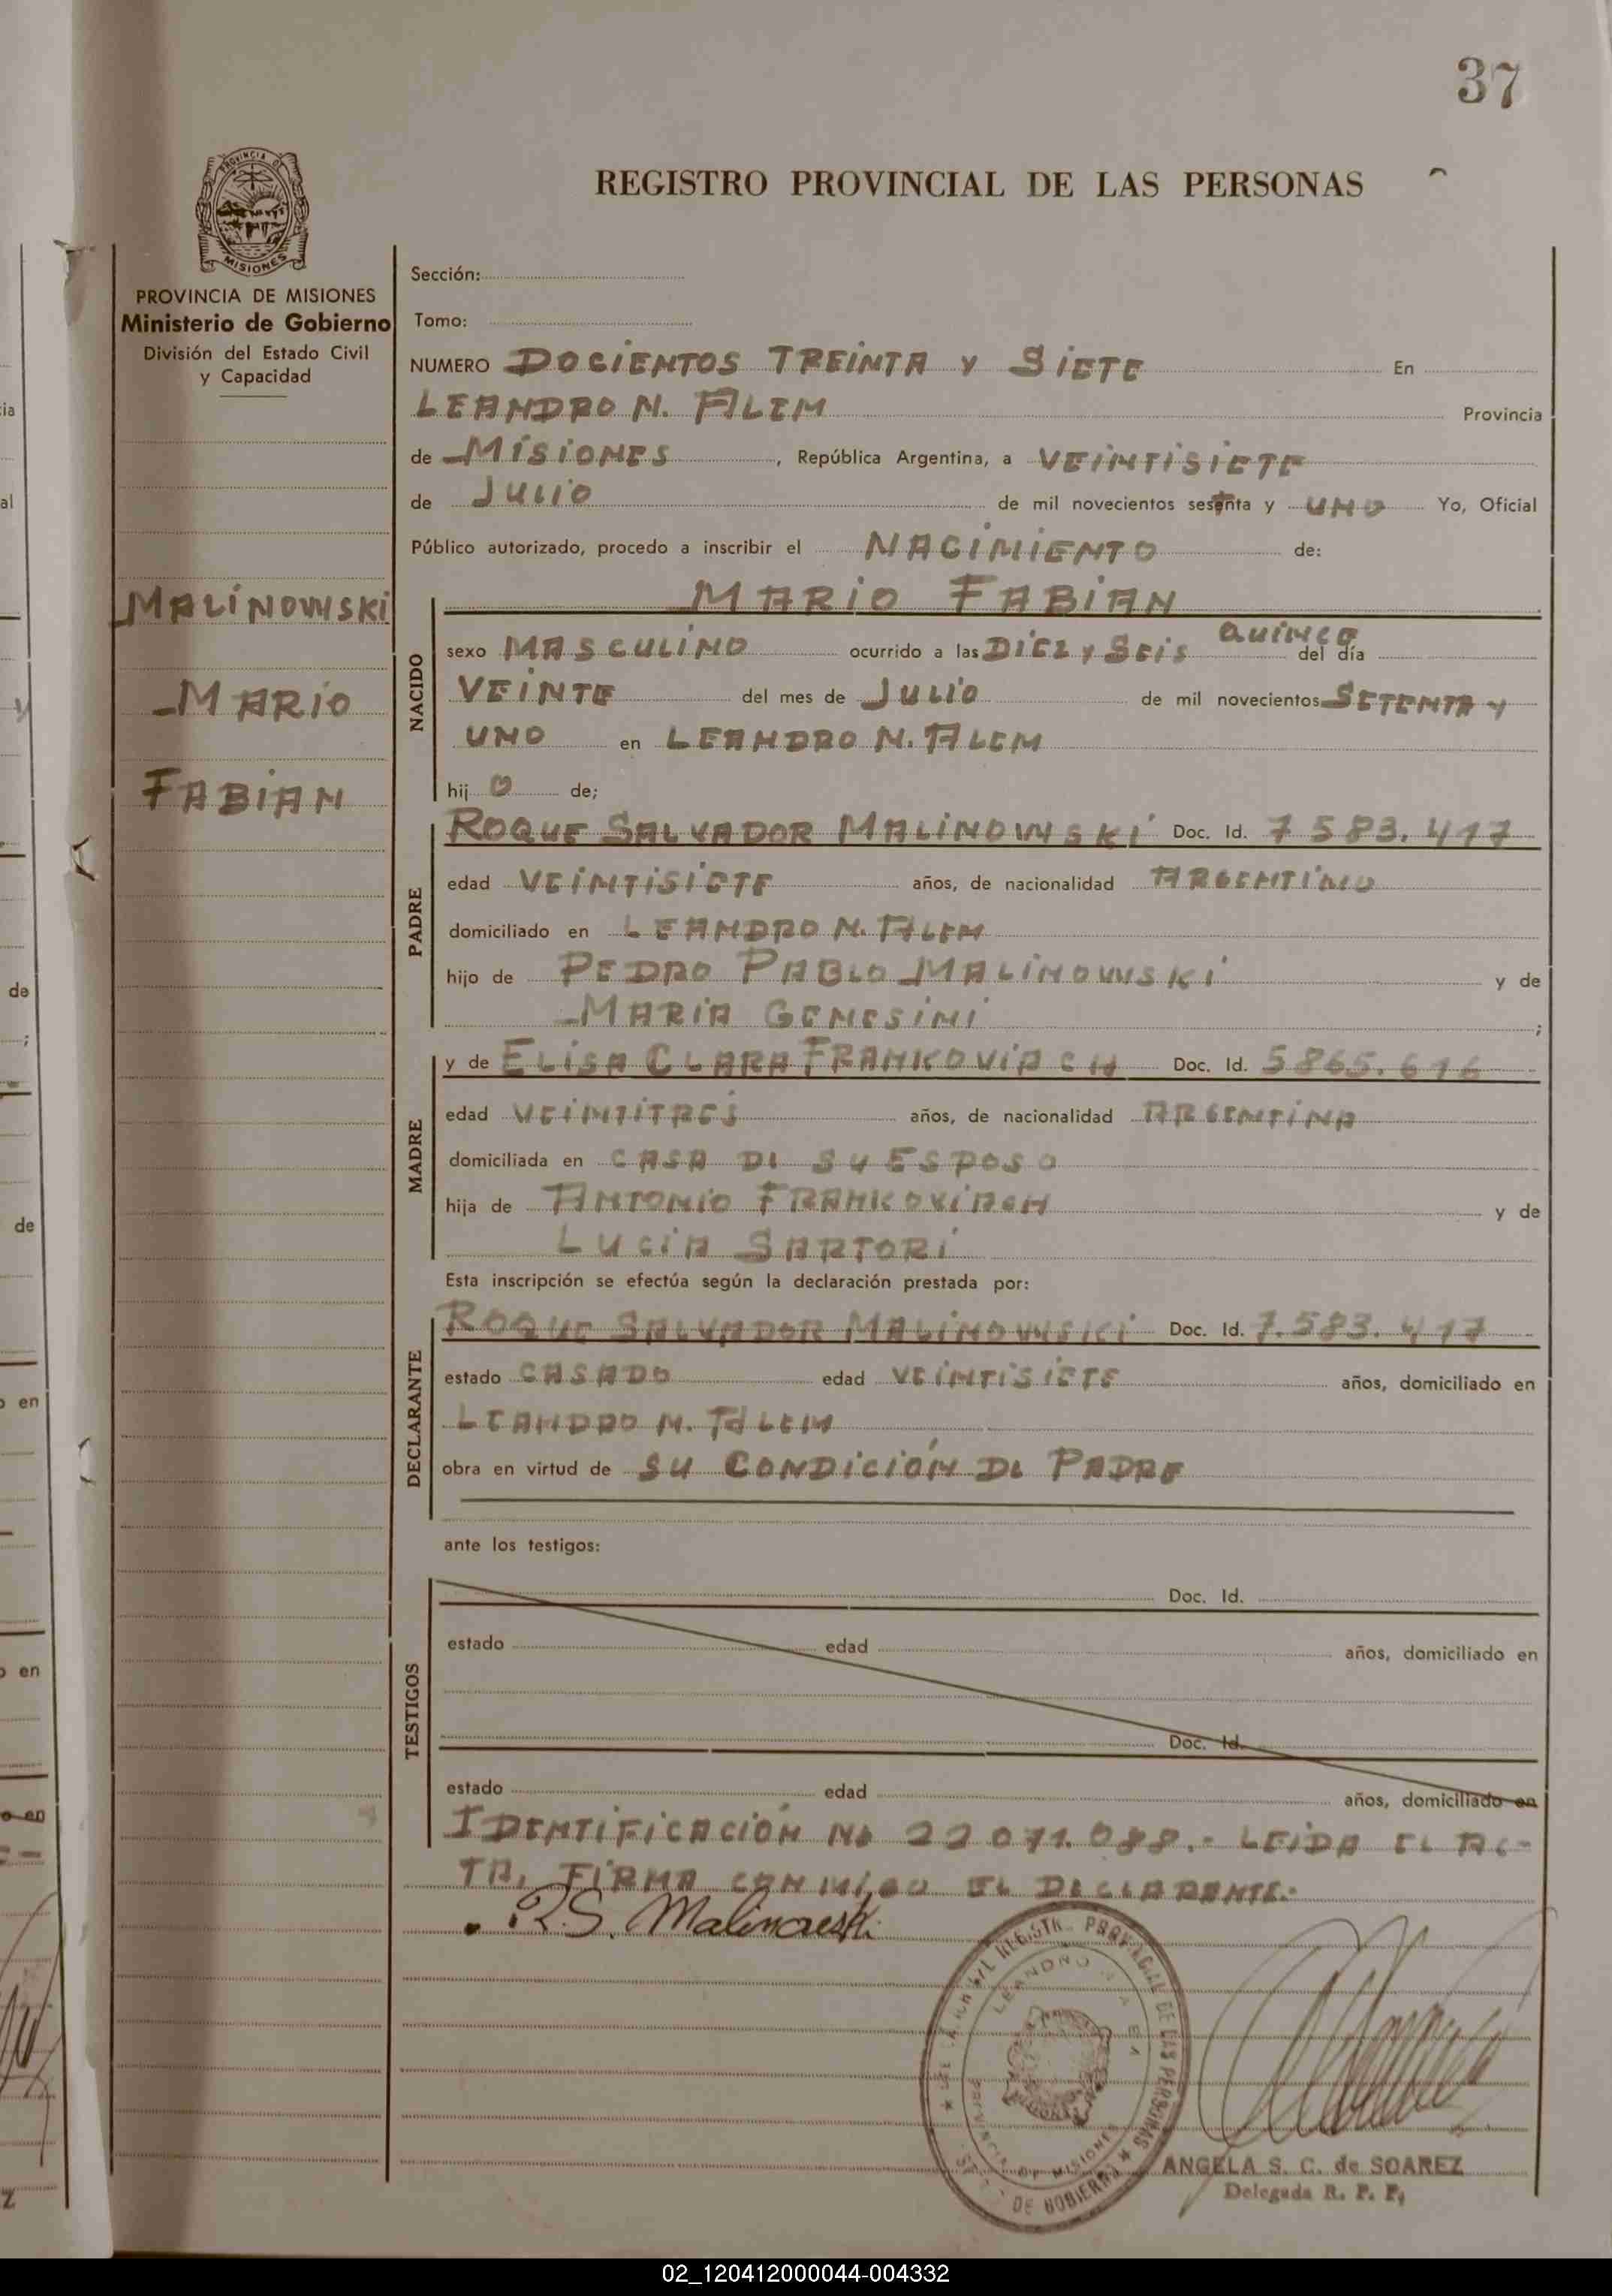 37
REGISTRO PROVINCIAL DE LAS PERSONAS
PROVINCIA DE MISIONES
MISIONES
PROVINCIA DE MISIONES
Ministerio de Gobierno
División del Estado Civil
y Capacidad
MALINOWSKI
MARIO
FABIAN
Sección:
Tomo:
NUMERO DOCIENTOS TREINTA Y SIETE En
LEANDRO N. ALEM Provincia
de MISIONES, República Argentina, a VEINTISIETE
de JULIO de mil novecientos setenta y UNO Yo, Oficial
Público autorizado, procedo a inscribir el NACIMIENTO de:
NACIDO
MARIO FABIAN
sexo MASCULINO ocurrido a las DIEZ Y SEIS QUINCE del día
VEINTE del mes de JULIO de mil novecientos SETENTA Y
UNO en LEANDRO N. ALEM
hij O de;
PADRE
ROQUE SALVADOR MALINOWSKI Doc. Id. 7583.417
edad VEINTISIETE años, de nacionalidad ARGENTINO
domiciliado en LEANDRO N. ALEM
hijo de PEDRO PABLO MALINOWSKI y de
MARIA GENESINI;
MADRE
y de ELISA CLARA FRANKOVIACH Doc. Id. 5865.616
edad VEINTITRES años, de nacionalidad ARGENTINA
domiciliada en CASA DE SU ESPOSO
hija de ANTONIO FRANKOVIACH y de
LUCIA SARTORI
Esta inscripción se efectúa según la declaración prestada por:
DECLARANTE
ROQUE SALVADOR MALINOWSKI Doc. Id. 7.583.417
estado CASADO edad VEINTISIETE años, domiciliado en
LEANDRO N. ALEM
obra en virtud de SU CONDICIÓN DE PADRE
ante los testigos:
TESTIGOS
Doc. Id.
estado edad años, domiciliado en
Doc. Id.
estado edad años, domiciliado en
IDENTIFICACIÓN No 22071.088.- LEIDA EL AC-
TA, FIRMA CONMIGO EL DECLARANTE.-
R.S. Malinowski
REGISTR. PROVINCIAL DE LAS PERSONAS
LEANDRO N. ALEM
PROVINCIA DE MISIONES
DE GOBIERNO
ANGELA S. C. de SOAREZ
Delegada R. P. P.
02_120412000044-004332